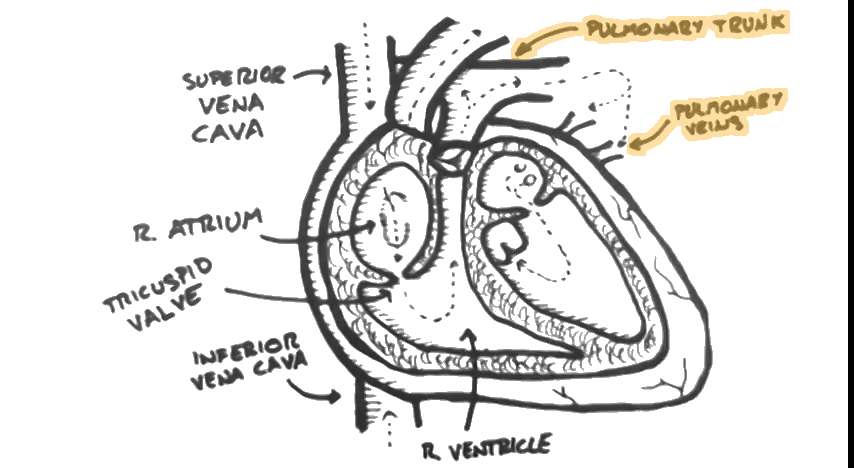 PULMONARY TRUNK
SUPERIOR
VENA
CAVA
PULMONARY
VEINS
R. ATRIUM
TRICUSPID
VALVE
INFERIOR
VENA CAVA
R VENTRICLE